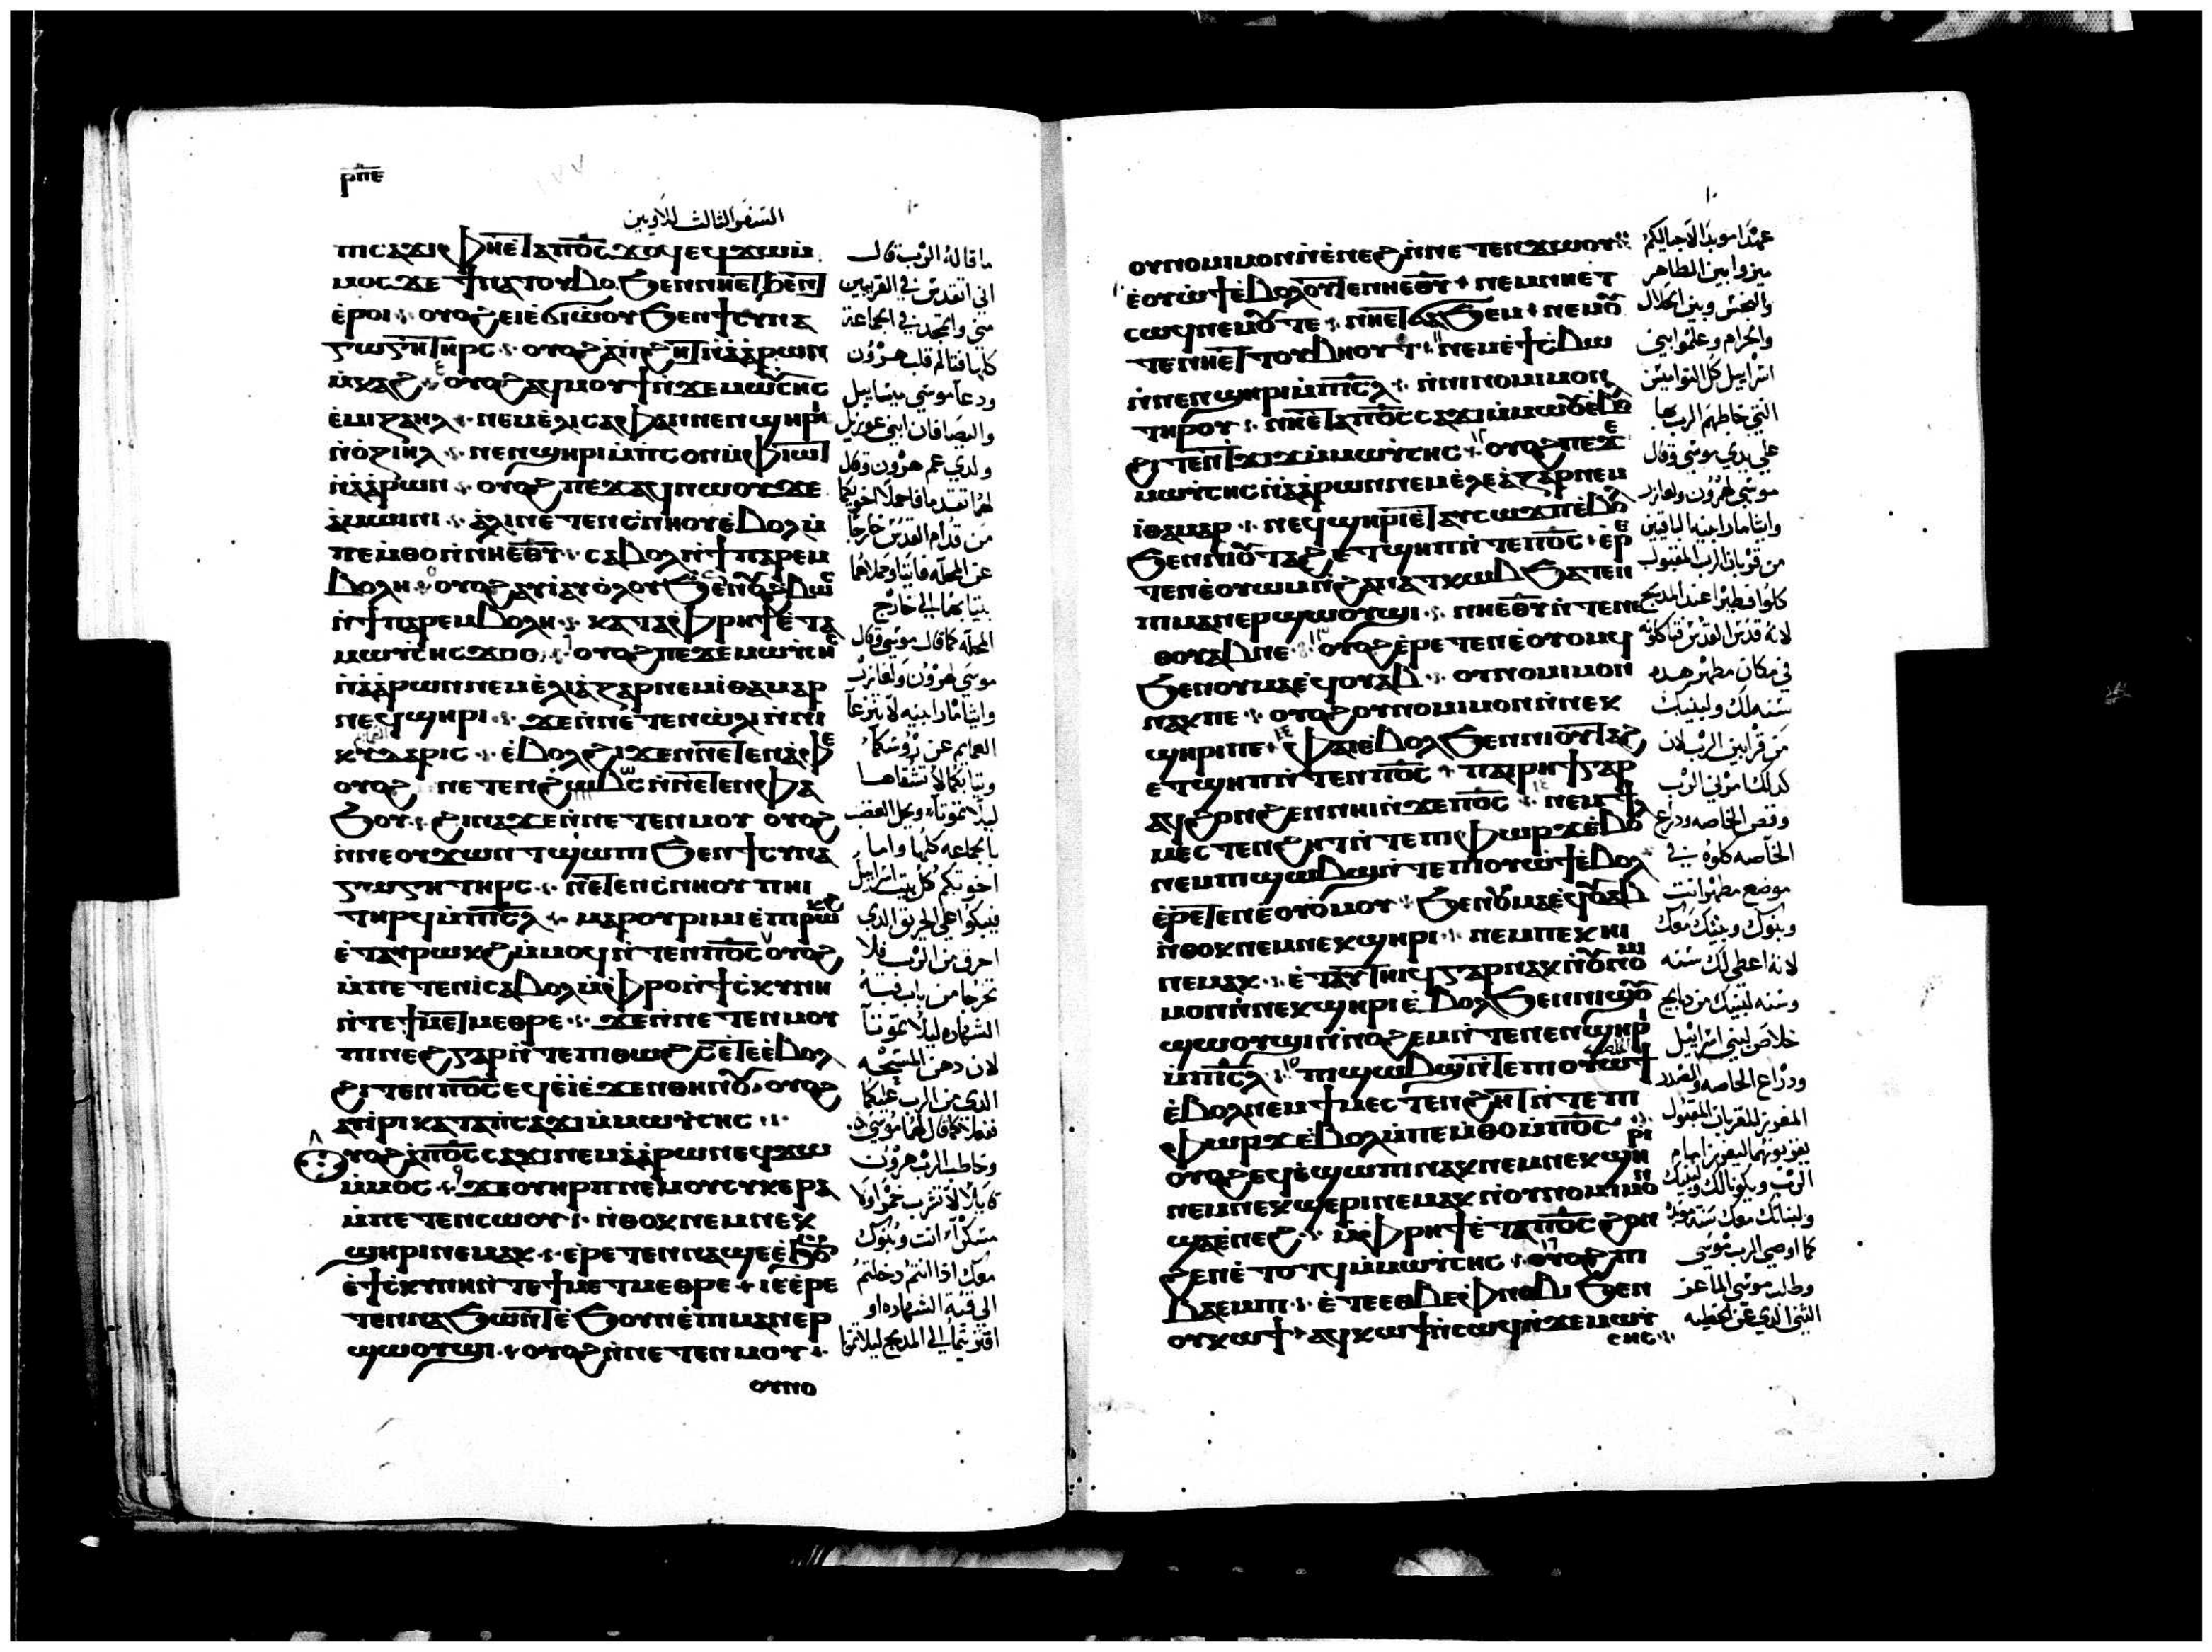 ⲣ̅ⲡ̅ⲉ̅
السفر الثالث للاويين
ⲡⲓⲥⲁϫⲓ ⲫⲏⲉⲧⲁⲡⲟ̅ⲥ̅ ϫⲟϥ ⲉϥϫⲱⲙ̀
ⲙⲟⲥ ϫⲉ ϯⲛⲁⲧⲟⲩⲃⲟ ϧⲉⲛ ⲛⲏⲉⲧϧⲉⲛⲧ
ⲉ̀ⲣⲟⲓ ⲟⲩⲟϩ ⲉⲓⲉ̀ϭⲓⲱ̀ⲟⲩ ϧⲉⲛ ϯⲥⲩⲛⲁ
ⲅⲱⲅⲏ ⲧⲏⲣⲥ ⲟⲩⲟϩ ⲁ̀ⲡϩⲏⲧ ⲛ̀ⲁ̀ⲁ̀ⲣⲱⲛ
ⲙ̀ⲕⲁϩ ⲟⲩⲟϩ ⲁϥⲙⲟⲩϯ ⲛ̀ϫⲉ ⲙⲱⲩ̀ⲥⲏⲥ
ⲉ̀ⲙⲓⲍⲁⲏⲗ ⲛⲉⲙ ⲉ̀ⲗⲓⲥⲁⲫⲁⲛ ⲛⲉⲛϣⲏⲣⲓ
ⲛ̀ⲟ̀ⲍⲓⲏⲗ ⲛⲉⲛϣⲏⲣⲓ ⲙ̀ⲡⲥⲟⲛ ⲙ̀ⲫⲓⲱⲧ
ⲛ̀ⲁ̀ⲁ̀ⲣⲱⲛ ⲟⲩⲟϩ ⲡⲉϫⲁϥ ⲛⲱⲟⲩ ϫⲉ
ⲁ̀ⲙⲱⲓⲛⲓ ⲁ̀ⲗⲓ ⲛⲉⲧⲉⲛⲥ̀ⲛⲏⲟⲩ ⲉ̀ⲃⲟⲗ ⲙ̀
ⲡⲉⲙ̀ⲑⲟ ⲛ̀ⲛⲏⲉ̅ⲑ̅ⲩ̅ ⲥⲁⲃⲟⲗ ⲛ̀ϯⲡⲁⲣⲉⲙ
ⲃⲟⲗⲏ ⲟⲩⲟϩ ⲁⲩⲓ̀ ⲁⲩⲟ̀ⲗⲟⲩ ϧⲉⲛ
ⲛ̀ϯⲡⲁⲣⲉⲙⲃⲟⲗⲏ ⲕⲁⲧⲁ ⲫⲣⲏϯ ⲉ̀ⲧⲁ
ⲙⲱⲩ̀ⲥⲏⲥ ϫⲟⲥ ⲟⲩⲟϩ ⲡⲉϫⲉ ⲙⲱⲩ̀ⲥⲏⲥ
ⲛ̀ⲁ̀ⲁ̀ⲣⲱⲛ ⲛⲉⲙ ⲉ̀ⲗⲓⲁ̀ⲍⲁⲣ ⲛⲉⲙ ⲓ̀ⲑⲁⲙⲁⲣ
ⲛⲉϥϣⲏⲣⲓ ϫⲉ ⲛ̀ⲛⲉⲧⲉⲛⲱ̀ⲗⲓ ⲛ̀ⲛⲓ
ⲕⲩⲇⲁⲣⲓⲥ ⲉ̀ⲃⲟⲗϩⲓϫⲉⲛ ⲛⲉⲧⲉⲛⲁ̀ⲫⲉ
ⲟⲩⲟϩ ⲛⲉⲧⲉⲛϩⲱⲃⲥ ⲛ̀ⲛⲉⲧⲉⲛⲫⲁ
ϧⲟⲩ ϩⲓⲛⲁ ϫⲉ ⲛ̀ⲛⲉⲧⲉⲛⲙⲟⲩ ⲟⲩⲟϩ
ⲛ̀ⲛⲉⲟⲩϫⲱⲛⲧ ϣⲱⲡⲓ ϧⲉⲛ ϯⲥⲩⲛⲁ
ⲅⲱⲅⲏ ⲧⲏⲣⲥ ⲛⲉⲧⲉⲛⲥ̀ⲛⲏⲟⲩ ⲡⲏⲓ
ⲧⲏⲣϥ ⲙ̀ⲡⲓ̅ⲥ̅ⲗ̅ ⲙⲁⲣⲟⲩⲣⲓⲙⲓ ⲉ̀ⲡⲓⲣⲱⲕϩ
ⲉ̀ⲧⲁⲩⲣⲱⲕϩ ⲙ̀ⲙⲟϥ ⲛ̀ⲧⲉⲛ ⲡⲟ̅ⲥ̅ ⲟⲩⲟϩ
ⲙ̀ⲡⲉⲧⲉⲛⲓ̀ ⲥⲁⲃⲟⲗ ⲙ̀ⲫⲣⲟ ⲛ̀ϯⲥ̀ⲕⲩⲛⲏ
ⲛ̀ⲧⲉ ϯⲙⲉⲧⲙⲉⲑⲣⲉ ϫⲉ ⲛ̀ⲛⲉⲧⲉⲛⲙⲟⲩ
ⲡⲓⲛⲉϩ ⲅⲁⲣ ⲛ̀ⲧⲉ ⲡⲓⲑⲱϩⲥ ⲉ̀ⲧⲉ ⲉ̀ⲃⲟⲗ
ϩⲓⲧⲉⲛ ⲡⲟ̅ⲥ̅ ⲉϥⲉ̀ⲓ̀ ⲉ̀ϫⲉⲛ ⲑⲏⲛⲟⲩ ⲟⲩⲟϩ
ⲁⲩⲓ̀ⲣⲓ ⲕⲁⲧⲁ ⲡⲥⲁϫⲓ ⲙ̀ⲙⲱⲩ̀ⲥⲏⲥ
ⲟⲩⲟϩ ⲁ̀ⲡⲟ̅ⲥ̅ ⲥⲁϫⲓ ⲛⲉⲙ ⲁ̀ⲁ̀ⲣⲱⲛ ⲉϥϫⲱ
ⲙ̀ⲙⲟⲥ ϫⲉ ⲟⲩⲏⲣⲡ ⲛⲉⲙ ⲟⲩⲥⲩⲕⲉⲣⲁ
ⲙ̀ⲡⲉⲧⲉⲛⲥⲱⲟⲩ ⲛ̀ⲑⲟⲕ ⲛⲉⲙ ⲛⲉⲕ
ϣⲏⲣⲓ ⲛⲉⲙⲁⲕ ⲉⲣⲉⲧⲉⲛⲛⲁϣⲉ ⲉ̀ϧⲟⲩⲛ
ⲉ̀ϯⲥ̀ⲕⲩⲛⲏ ⲛ̀ⲧⲉ ϯⲙⲉⲧⲙⲉⲑⲣⲉ ⲓⲉ ⲉ̀ⲣⲉ
ⲧⲉⲛⲛⲁϧⲱⲛⲧ ⲉ̀ϧⲟⲩⲛ ⲉ̀ⲡⲓⲙⲁⲛⲉⲣ
ϣⲱⲟⲩϣⲓ ⲟⲩⲟϩ ⲛ̀ⲛⲉⲧⲉⲛⲙⲟⲩ
ⲟⲩⲛⲟ
ما قاله الرب قال
اني اتقدس في القريبين
مني واتمجد في الجماعة
كلها فتالم قلب هرون
ودعا موسي ميصاييل
والبصافان ابني عوزييل
ولدي عم هرون وقال
لهما تقدما فاحملا اخويكما
من قدام القدس خارجا
عن المحله فاتيا وحملاهما
بثيابهما الي خارج
المحله كما قال موسي وقال
موسي لهرون ولعازر
وايثامار ابنيه لا تنزعا
العمايم عن رؤسكما
وثيابكما لا تشقاها
ليلا تموتا ويحل الغضب
بالجماعه كلها واما
اخوتكم كل بيت اسراييل
فيبكوا علي الحريق الذي
احرق من الرب فلا
تخرجا من باب قبة
الشهاده ليلا تموتا
لان دهن المسحه
الذي من الرب عليكما
ففعلا كما قال لهما موسي
وخاطب الرب هرون
قايلا لا تشرب خمرا ولا
مسكرا انت وبنوك
معك اذا انتم دخلتم
الي قبة الشهاده او
اقتربتما الي المدبح ليلا تموتوا
ⲟⲩⲛⲟⲙⲓⲙⲟⲛ ⲛ̀ⲉ̀ⲛⲉϩ ⲛ̀ⲛⲉⲧⲉⲛϫⲱⲟⲩ
ⲉ̀ⲟⲩⲱ̀ϯ ⲉ̀ⲃⲟⲗ ⲟⲩⲧⲉ ⲛⲏⲉ̅ⲑ̅ⲩ̅ ⲛⲉⲙ ⲛⲏⲉⲧ
ⲥⲱϥ ⲛⲉⲙ ⲟⲩⲧⲉ ⲛⲏⲉⲧϭⲁϧⲉⲙ ⲛⲉⲙ ⲟⲩ
ⲧⲉ ⲛⲏⲉⲧⲧⲟⲩⲃⲏⲟⲩⲧ ⲛⲉⲙ ⲉ̀ϯⲥ̀ⲃⲱ
ⲛ̀ⲛⲉⲛϣⲏⲣⲓ ⲙ̀ⲡⲓ̅ⲥ̅ⲗ̅ ⲛ̀ⲛⲓⲛⲟⲙⲓⲙⲟⲛ
ⲧⲏⲣⲟⲩ ⲛⲏⲉⲧⲁⲡⲟ̅ⲥ̅ ⲥⲁϫⲓ ⲙ̀ⲙⲱⲟⲩ ⲉ̀ⲃⲟⲗ
ϩⲓⲧⲉⲛ ϫⲓϫ ⲙ̀ⲙⲱⲩ̀ⲥⲏⲥ ⲟⲩⲟϩ ⲡⲉϫⲉ
ⲙⲱⲩ̀ⲥⲏⲥ ⲛ̀ⲁ̀ⲁ̀ⲣⲱⲛ ⲛⲉⲙ ⲉ̀ⲗⲉⲁ̀ⲍⲁⲣ ⲛⲉⲙ
ⲓ̀ⲑⲁⲙⲁⲣ ⲛⲉϥϣⲏⲣⲓ ⲉ̀ⲧⲁⲩⲥⲱϫⲡ ⲉ̀ⲃⲟⲗ
ϧⲉⲛ ⲛⲓⲟⲩⲧⲁϩ ⲉⲧϣⲏⲡ ⲛ̀ⲧⲉ ⲡⲟ̅ⲥ̅ ⲉ̀ⲣⲉ
ⲧⲉⲛⲉ̀ⲟⲩⲱⲙ ⲛ̀ϩⲁⲛⲁⲧⲕⲱⲃ ϧⲁⲧⲉⲛ
ⲡⲓⲙⲁⲛⲉⲣϣⲱⲟⲩϣⲓ ⲛⲏⲉ̅ⲑ̅ⲩ̅ ⲛ̀ⲧⲉ ⲛⲉ
ⲑⲟⲩⲁⲃ ⲛⲉ ⲟⲩⲟϩ ⲉ̀ⲣⲉⲧⲉⲛⲉ̀ⲟⲩⲟⲙϥ
ϧⲉⲛ ⲟⲩⲙⲁ ⲉϥⲟⲩⲁⲃ ⲟⲩⲛⲟⲙⲓⲙⲟⲛ
ⲛⲁⲕ ⲡⲉ ⲟⲩⲟϩ ⲟⲩⲛⲟⲙⲓⲙⲟⲛ ⲛ̀ⲛⲉⲕ
ϣⲏⲣⲓ ⲡⲉ ⲫⲁⲓ ⲉ̀ⲃⲟⲗ ϧⲉⲛ ⲛⲓⲟⲩⲧⲁϩ
ⲉⲧϣⲏⲡ ⲛ̀ⲧⲉⲛ ⲡⲟ̅ⲥ̅ ⲡⲁⲓⲣⲏϯ ⲅⲁⲣ
ⲁϥϩⲟⲛϩⲉⲛ ⲛⲏⲓ ⲛ̀ϫⲉ ⲡⲟ̅ⲥ̅ ⲛⲉⲙ ϯ
ⲙⲉⲥⲧⲉⲛϩⲏⲧ ⲛ̀ⲧⲉ ⲡⲓⲫⲱⲣϫ ⲉ̀ⲃⲟⲗ
ⲛⲉⲙ ⲡⲓϣⲱⲃϣ ⲛ̀ⲧⲉ ⲡⲓⲟⲩⲱ̀ϯ ⲉ̀ⲃⲟⲗ
ⲉ̀ⲣⲉⲧⲉⲛⲉ̀ⲟⲩⲟ̀ⲙⲟⲩ ϧⲉⲛ ⲟⲩⲙⲁ ⲉϥⲟⲩⲁⲃ
ⲛ̀ⲑⲟⲕ ⲛⲉⲙ ⲛⲉⲕϣⲏⲣⲓ ⲛⲉⲙ ⲡⲉⲕⲏⲓ
ⲛⲉⲙⲁⲕ ⲉ̀ⲧⲁⲩⲧⲏⲓϥ ⲅⲁⲣ ⲛⲁⲕ ⲛ̀ⲟⲩⲛⲟⲙⲓ
ⲙⲟⲛ ⲛ̀ⲛⲉⲕϣⲏⲣⲓ ⲉ̀ⲃⲟⲗ ϧⲉⲛ ⲛⲓϣⲟⲩ
ϣⲱⲟⲩϣⲓ ⲛ̀ⲛⲟϩⲉⲙ ⲛ̀ⲧⲉ ⲛⲉⲛϣⲏⲣⲓ
ⲙ̀ⲡⲓ̅ⲥ̅ⲗ̅ ⲡⲓϣⲱⲃϣ ⲛ̀ⲧⲉ ⲡⲓⲟⲩⲱϯ
ⲉ̀ⲃⲟⲗ ⲛⲉⲙ ϯⲙⲉⲥⲧⲉⲛϩⲏⲧ ⲛ̀ⲧⲉ ⲡⲓ
ⲫⲱⲣϫ ⲉ̀ⲃⲟⲗ ⲙ̀ⲡⲉⲙ̀ⲑⲟ ⲙ̀ⲡⲟ̅ⲥ̅
ⲟⲩⲟϩ ⲉϥⲉ̀ϣⲱⲡⲓ ⲛⲁⲕ ⲛⲉⲙ ⲛⲉⲕϣⲏⲣⲓ
ⲛⲉⲙ ⲛⲉⲕϣⲉⲣⲓ ⲛⲉⲙⲁⲕ ⲛ̀ⲟⲩⲛⲟⲙⲓⲙⲟⲛ
ϣⲁⲉ̀ⲛⲉϩ ⲙ̀ⲫⲣⲏϯ ⲉ̀ⲧⲁⲡⲟ̅ⲥ̅ ϩⲟⲛ
ϩⲉⲛ ⲉ̀ⲧⲟⲧϥ ⲙ̀ⲙⲱⲩ̀ⲥⲏⲥ ⲟⲩⲟϩ ⲡⲓ
ⲃⲁⲉⲙⲡⲓ ⲉ̀ⲧⲉ ⲉⲑⲃⲉ ⲫⲛⲟⲃⲓ ϧⲉⲛ
ⲟⲩⲕⲱϯ ⲁϥⲕⲱϯ ⲛ̀ⲥⲱϥ ⲛ̀ϫⲉ ⲙⲱⲩ̀
ⲥⲏⲥ
عهدا موبدا لاجيالكم
ميزوا بين الطاهر
والنجس وبين الحلال
والحرام وعلموا بني
اسراييل كل النواميس
التي خاطبهم الرب بها
علي يدي موسي وقال
موسي لهرون ولعازر
وايثامار ابنيه الباقيين
من قربان الرب المقبول
كلوا فطيرا عند المدبح
لانه قدس القدس فتاكلونه
في مكان مطهر هده
سنه لك ولبنيك
من قرابين الرب لان
كدلك امرني الرب
وقص الخاصه ودراع
الخاصه كلوه في
موضع مطهر انت
وبنوك وبيتك معك
لانه اعطي لك سنه
وسنه لبنيك من دبايح
خلاص لبني اسراييل
ودراع الخاصه والصدر
المفروز للقربان المقبول
امام
الرب ويكونا لك ولبنيك
ولبناتك معك سنه موبده
كما اوصي الرب موسي
وطلب موسي الماعز
التني الذي عن الخطيه